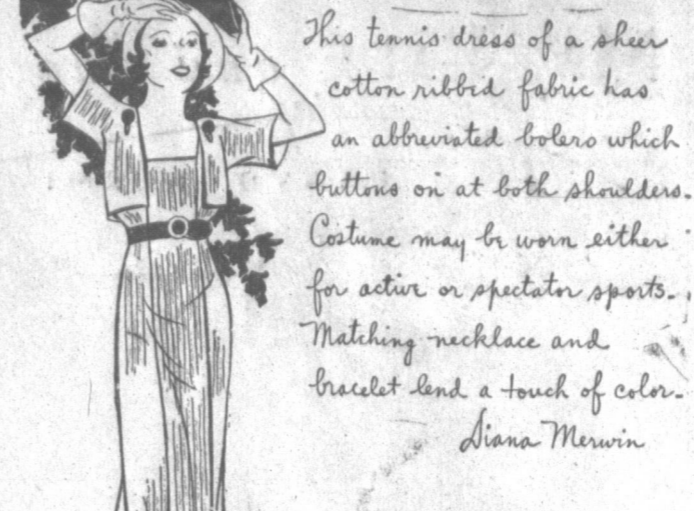 This tennis dress of a sheer
cotton ribbed fabric has
an abbreviated bolero which
buttons on at both shoulders.
Costume may be worn either
for active or spectator sports.
Matching necklace and
bracelet lend a touch of color.
Diana Merwin